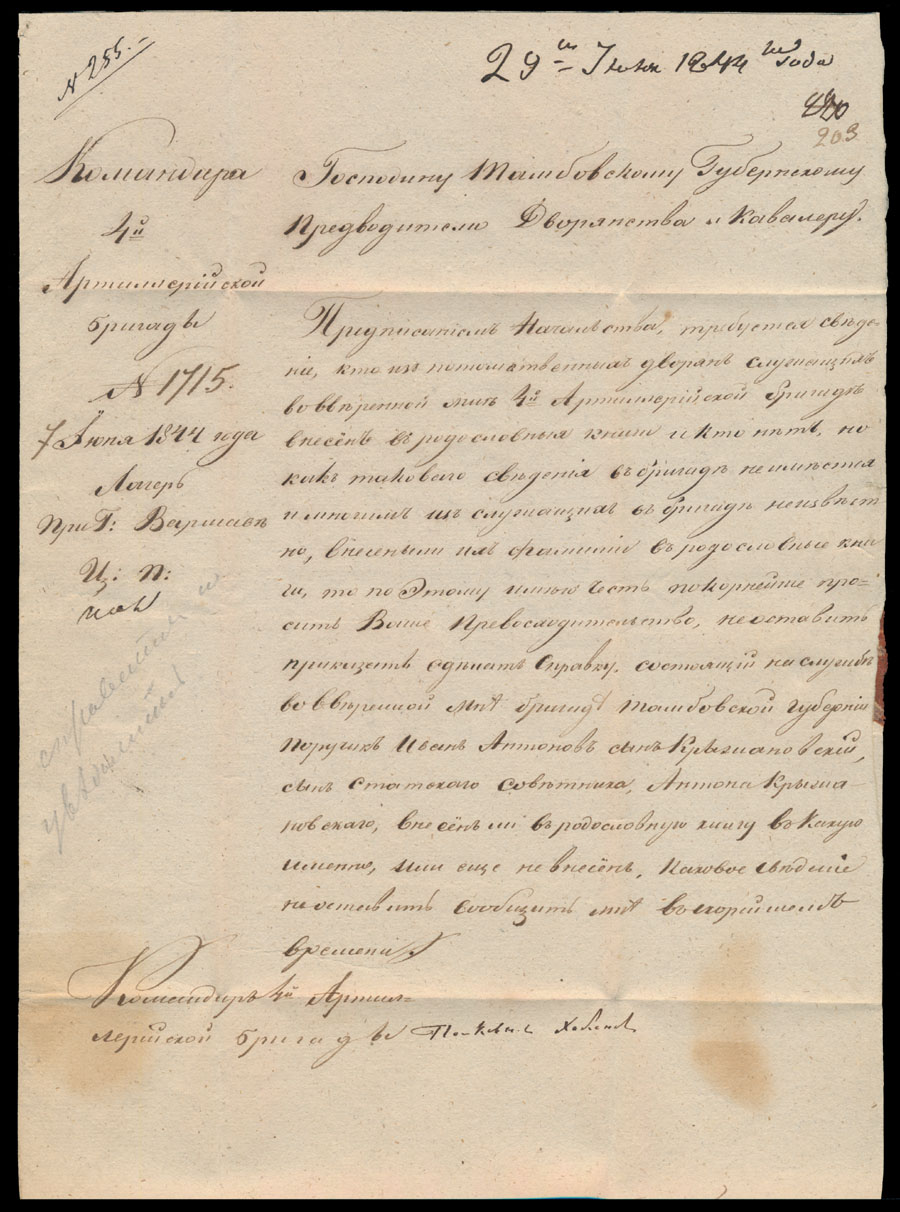 N 255.
29го Июня 1844го года
203
Командира
4й
Артиллерійской
бригады
N 1715.
7 Іюня 1844 года
Лагерь
При Г: Варшавѣ
Ц: П:
Господину Тамбовскому Губернскому
Предводителю Дворянства и Кавалеру.
Предписаніемъ Начальства, требуется свѣде-
ніе, кто изъ потомственныхъ дворянъ служащихъ
во ввѣренной мнѣ 4й Артиллерійской бригадѣ
внесёнъ въ родословныя книги и кто нѣтъ, но
какъ таковаго свѣденія въ бригадѣ не имѣется
и многимъ изъ служащихъ въ бригадѣ неизвѣст
но, внесеными ихъ фамиліи въ родословные кни
ги, то по Этому имѣю Честь покорнейше про-
сить Ваше Превосходительство, не оставить
приказать сделать Справку, состоящій на службѣ
во ввѣренной мнѣ бригадѣ Тамбовской Губерніи
Поручикъ Иванъ Антоновъ сынъ Крыжановскій,
сынъ Статскаго совѣтника, Антона Крыжа-
новскаго, внесёнъ ли въ родословную книгу въ Какую
именно, или еще не внесёнъ, Каковое свѣденіе
не оставить Сообщить мнѣ въ скорѣйшемъ
времени.
Командиръ 4й Артил-
лерійской бригады Полковникъ
справиться и
увѣдомить